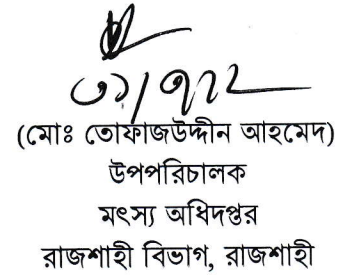 (মোঃ তোফাজউদ্দীন আহমেদ)
উপপরিচালক
মৎস্য অধিদপ্তর
রাজশাহী বিভাগ, রাজশাহী